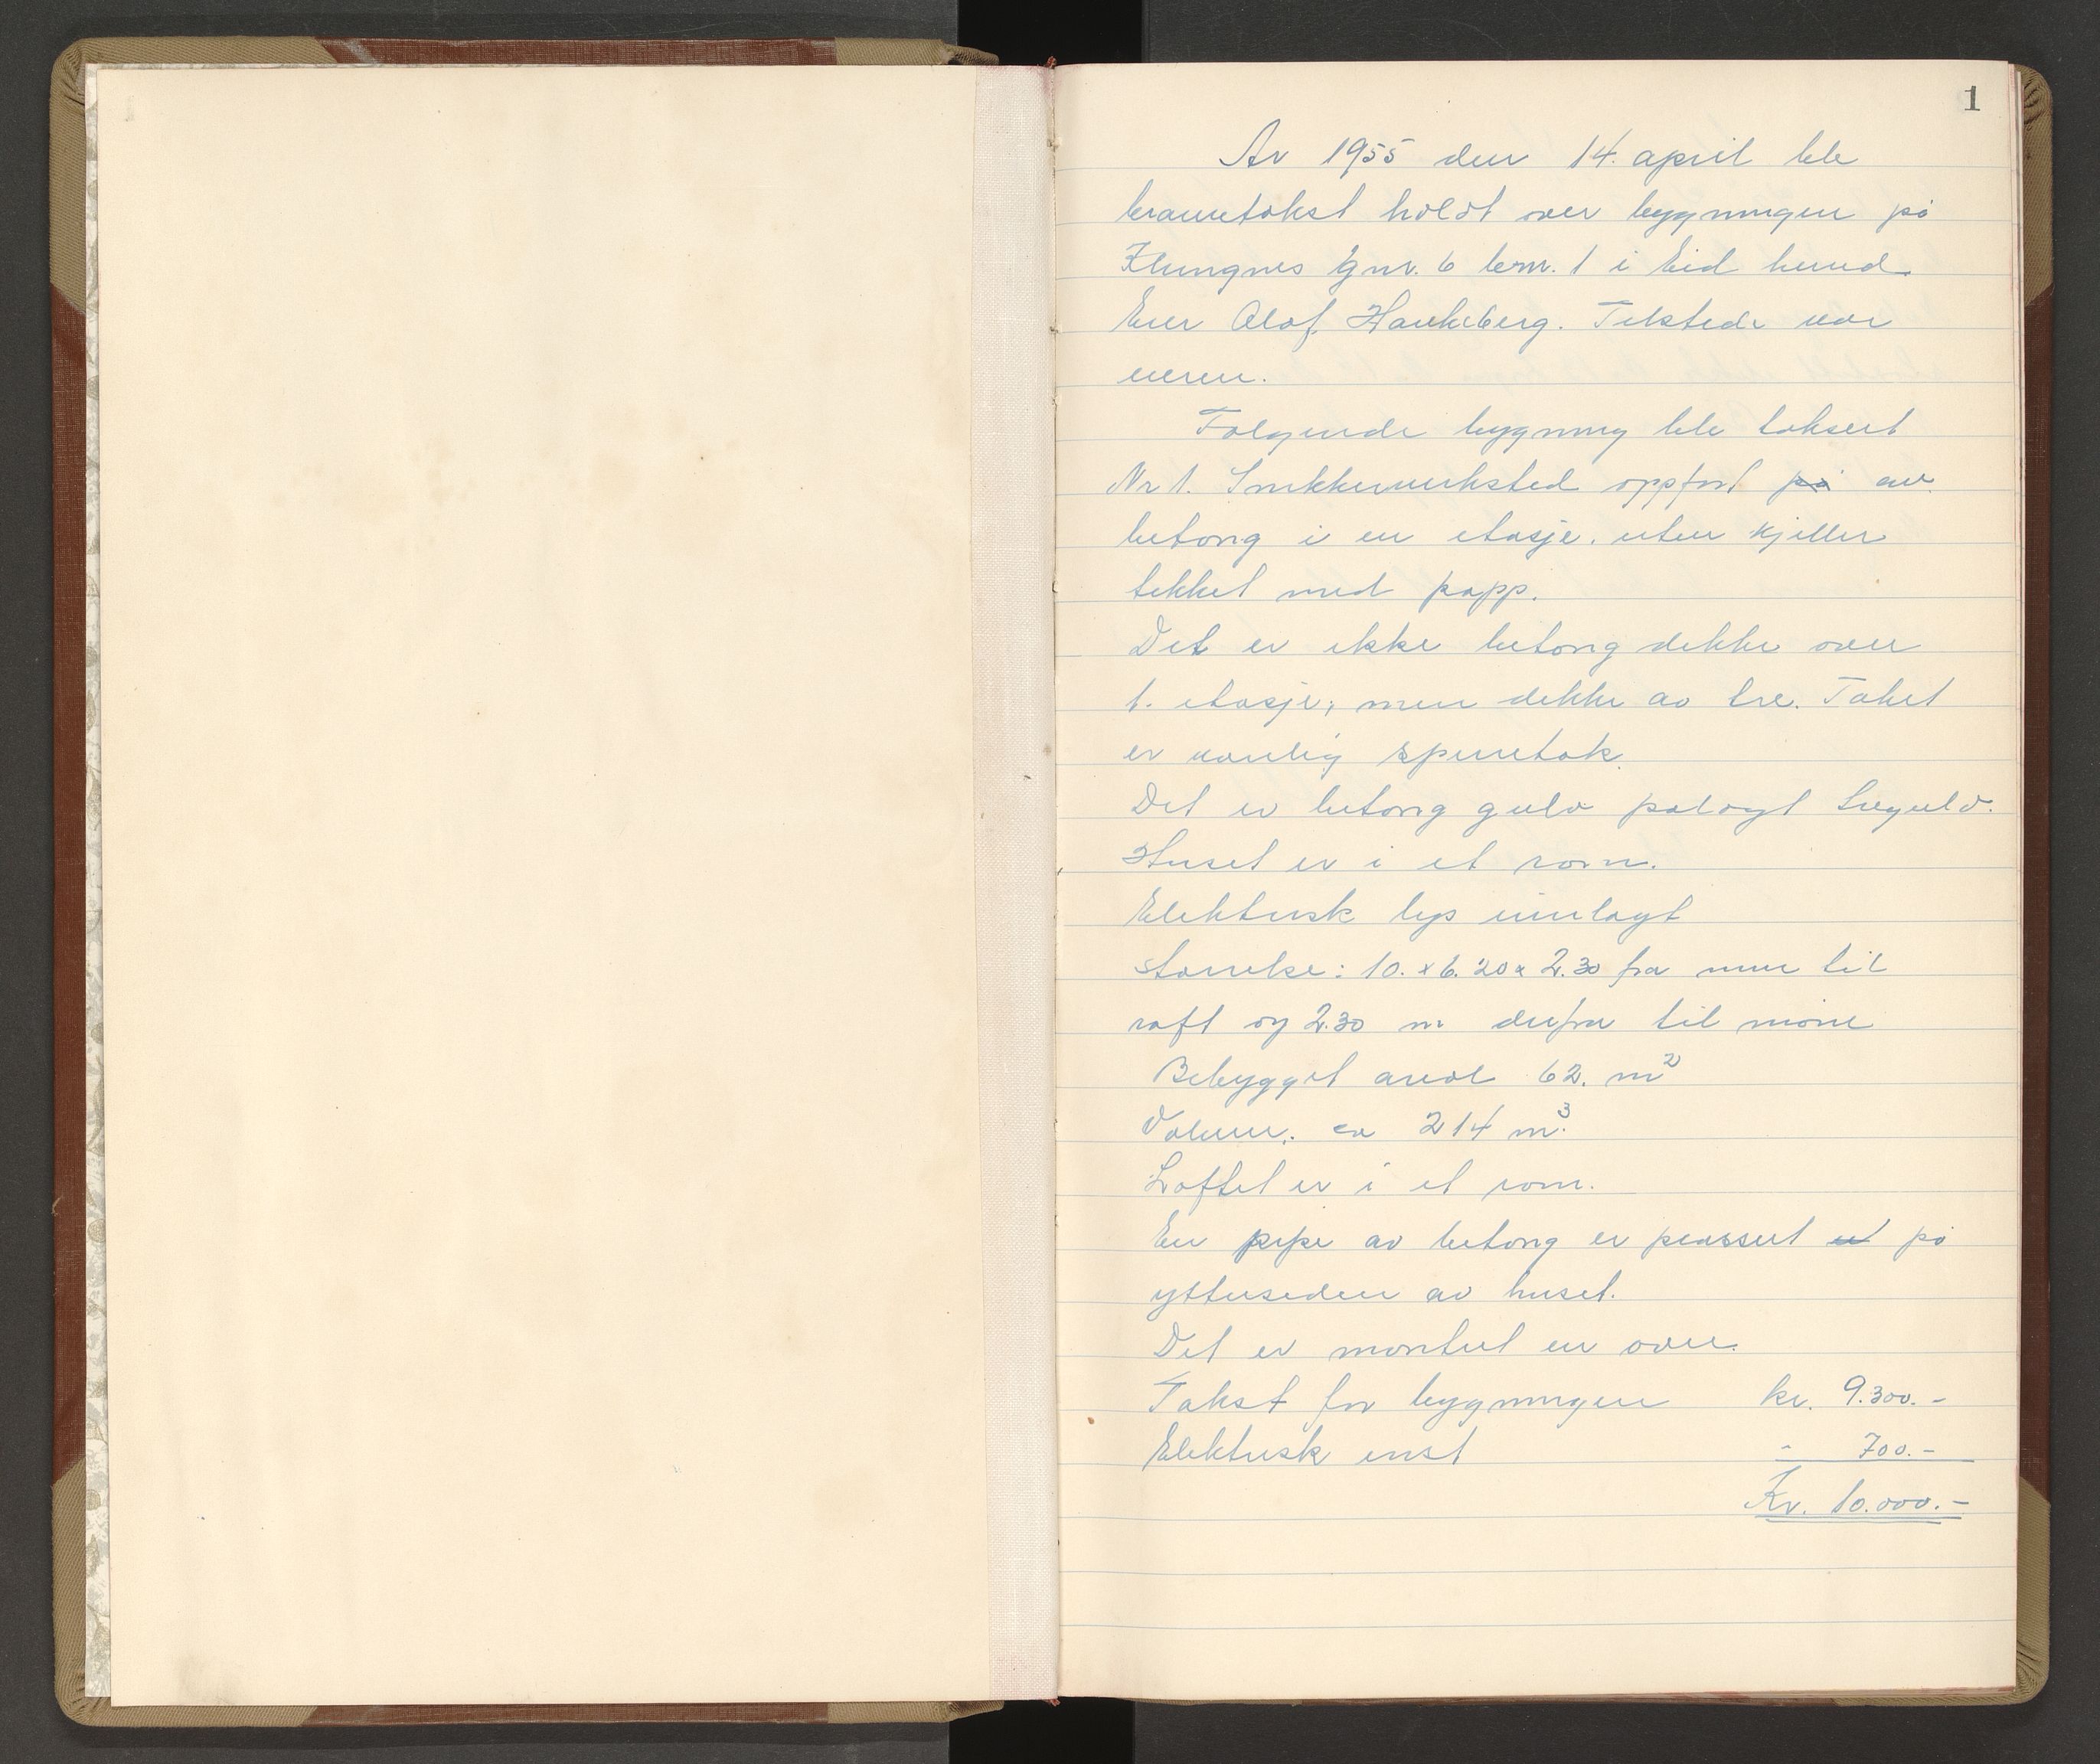 1
År 1955 den 14. april ble
branntakst holdt over bygningen på
Klungnes gnr. 6 bnr. 1 i Eid herred.
Eier Olaf Haukeberg. Tilstede var
eieren.
Følgende bygning ble taksert
Nr 1. Snikkerverksted oppført på av
betong i en etasje. uten kjeller
tekket med papp.
Det er ikke betong dekke over
1. etasje; men dekke av tre. Taket
er vanlig sperretak.
Det er betong gulv pålagt tregulv.
Huset er i et rom.
Elektrisk lys innlagt
Størrelse: 10. x 6.20 x 2.30 fra mur til
raft og 2.30 m derfra til møne
Bebygget areal 62. m²
Volum. ca 214 m³.
Loftet er i et rom.
En pipe av betong er plassert ut på
yttersiden av huset.
Det er montert en ovn.
Takst for bygningen kr. 9.300.-
Elektrisk inst " 700.-
Kr. 10.000.-